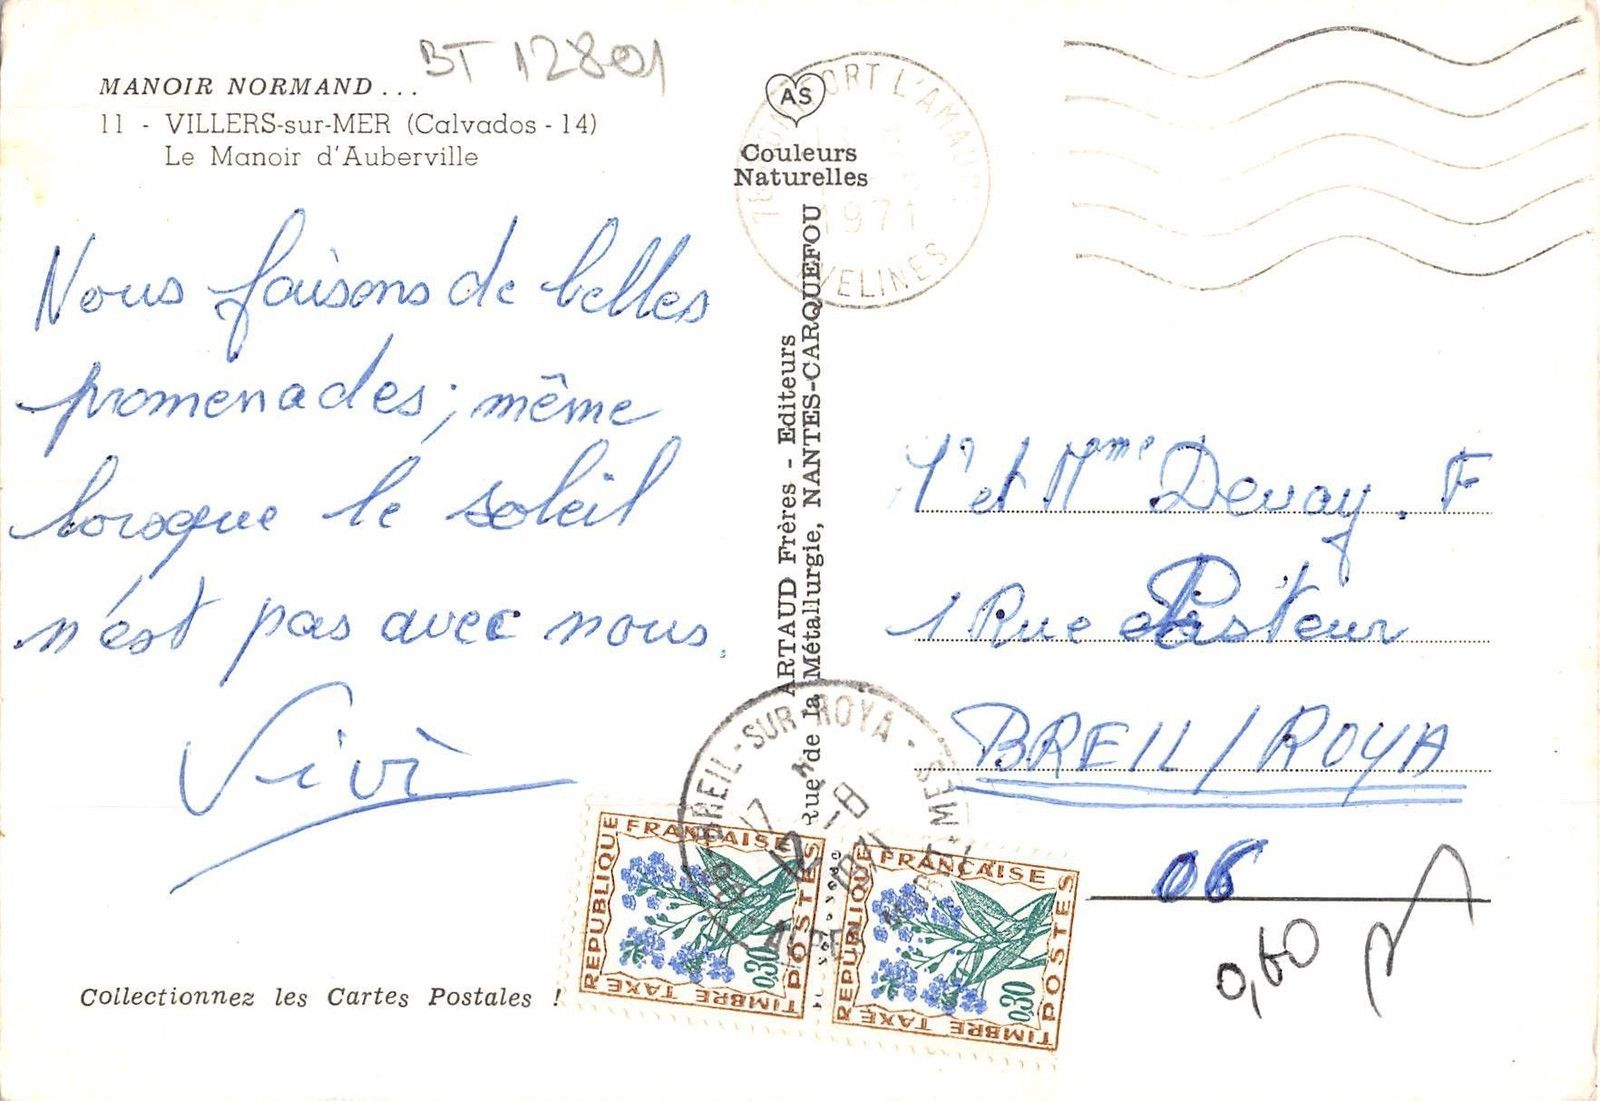 BT 12801
MANOIR NORMAND...
11 - VILLERS-sur-MER (Calvados - 14)
Le Manoir d'Auberville
Nous faisons de belles
promenades ; même
lorsque le soleil
n'est pas avec nous.
Vivi
Collectionnez les Cartes Postales !
AS
Couleurs
Naturelles
ARTAUD Frères - Editeurs
Rue de la Métallurgie, NANTES-CARQUEFOU
MONTFORT L'AMAURY
1971
YVELINES
Mr et Mme Devay. F
1 Rue Pasteur
BREIL/ROYA
06
0,60
BREIL-SUR-ROYA
17
12 -8
1971
ALPES MARMES
REPUBLIQUE FRANÇAISE
POSTES
0,30
TIMBRE TAXE
REPUBLIQUE FRANÇAISE
POSTES
0,30
TIMBRE TAXE